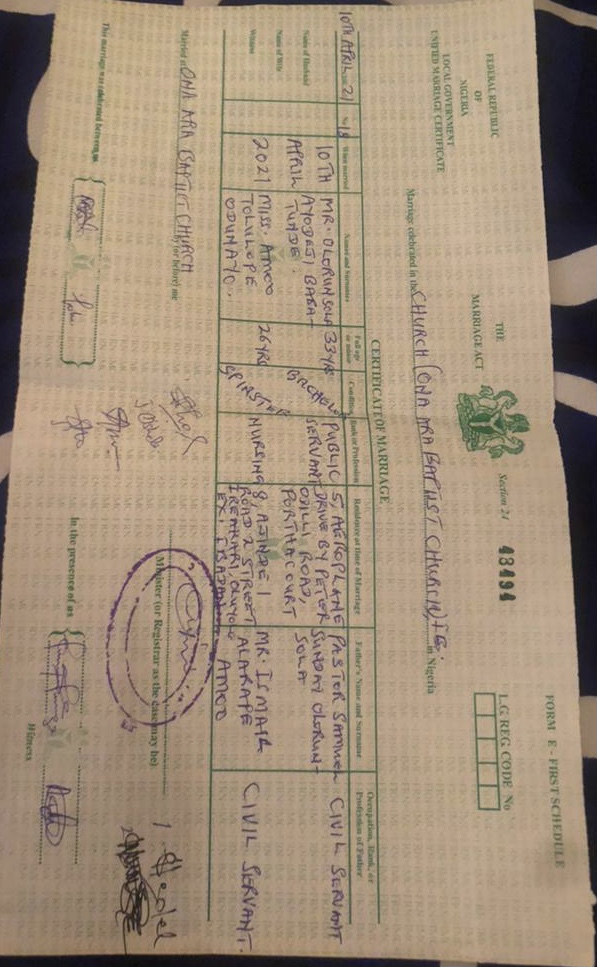 FORM E - FIRST SCHEDULE
FEDERAL REPUBLIC
OF
NIGERIA
LOCAL GOVERNMENT
UNIFIED MARRIAGE CERTIFICATE
THE
MARRIAGE ACT
Section 24
43494
L.G REG. CODE No
Marriage celebrated in the CHURCH (ONA ARA BAPTIST CHURCH) in Nigeria
CERTIFICATE OF MARRIAGE
10TH APRIL 21 No 18
When married
Names and Surnames
Full age or minor
Condition
Rank or Profession
Residence at time of Marriage
Father's Name and Surname
Occupation, Rank, or Profession of Father
Name of Husband
10TH APRIL 2021
MR. OLORUNSOLA AYODEJI BABATUNDE.
33YRS
BACHELOR
PUBLIC SERVANT
5, AEROPLANE DRIVE BY PETER ODILI ROAD, PORTHACOURT
PASTOR SAMUEL SUNDAY OLORUN-SOLA
CIVIL SERVANT
Name of Wife
Witness
MISS. AMOO TOLULOPE ODUNAYO.
26YRS
SPINSTER
NURSING
8, AJINDE 1 ROAD 2 STREET
EXT. IBADAN
MR. ISMAIR ALARAPE AMOO
CIVIL SERVANT.
Married at ONA ARA BAPTIST CHURCH (or before) me
Minister (or Registrar as the case may be)
This marriage was celebrated between us
In the presence of us
Witness